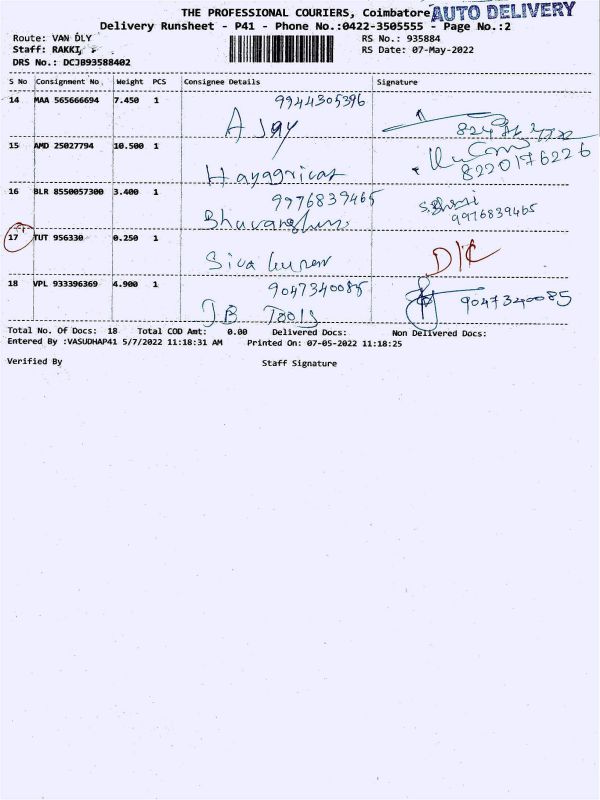 THE PROFESSIONAL COURIERS, Coimbatore AUTO DELIVERY
Delivery Runsheet - P41 - Phone No.:0422-3505555 - Page No.:2
Route: VAN DLY RS No.: 935884
Staff: RAKKI RS Date: 07-May-2022
DRS No.: DCJB93588402
S No Consignment No Weight PCS Consignee Details Signature
14 MAA 565666694 7.450 1 9944305396
Ajay
15 AMD 25027794 10.500 1 8220176226
Hayagrivas
16 BLR 8550057300 3.400 1 9976839465
9976839465
17 TUT 956330 0.250 1
Siva D/C
18 VPL 933396369 4.900 1 9047340085 9047340085
JB Tools
Total No. Of Docs: 18 Total COD Amt: 0.00 Delivered Docs: Non Delivered Docs:
Entered By :VASUDHAP41 5/7/2022 11:18:31 AM Printed On: 07-05-2022 11:18:25
Verified By Staff Signature